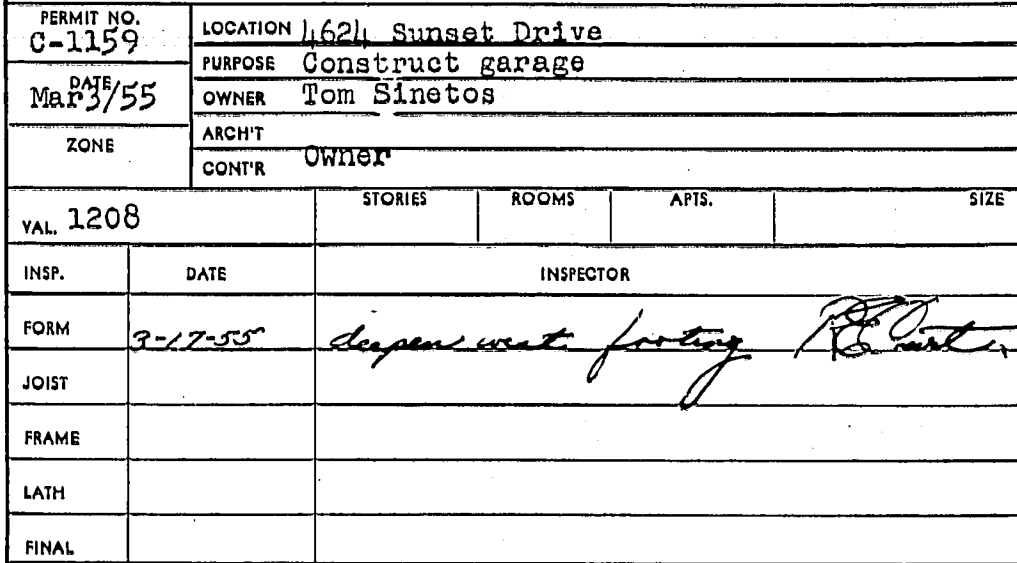 PERMIT NO.
C-1159
LOCATION 4624 Sunset Drive
PURPOSE Construct garage
DATE
Mar 3/55
OWNER Tom Sinetos
ZONE
ARCH'T
CONT'R Owner
VAL. 1208
STORIES ROOMS APTS. SIZE
INSP. DATE INSPECTOR
FORM 3-17-55 deepen west footing
JOIST
FRAME
LATH
FINAL